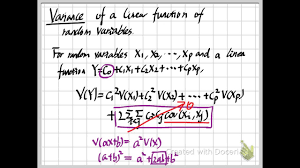 Variance of a linear function of
random variables.
For random variables X₁, X₂, ..., Xp and a linear
function Y = C₀ + C₁X₁ + C₂X₂ + ... + CpXp,
V(Y) = C₁² V(X₁) + C₂² V(X₂) + ... + Cp² V(Xp)
+ 2ΣΣ CᵢCⱼ Cov(Xᵢ, Xⱼ) 0
V(aX+b) = a² V(X)
(a+b)² = a² + 2ab + b²
Created with